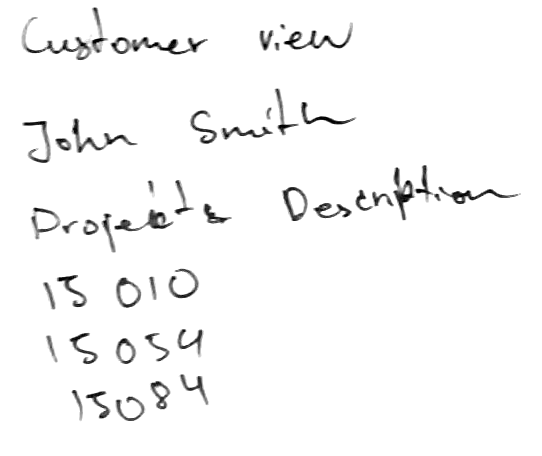 Customer view
John Smith
Projekts Description
15 010
15 054
15084